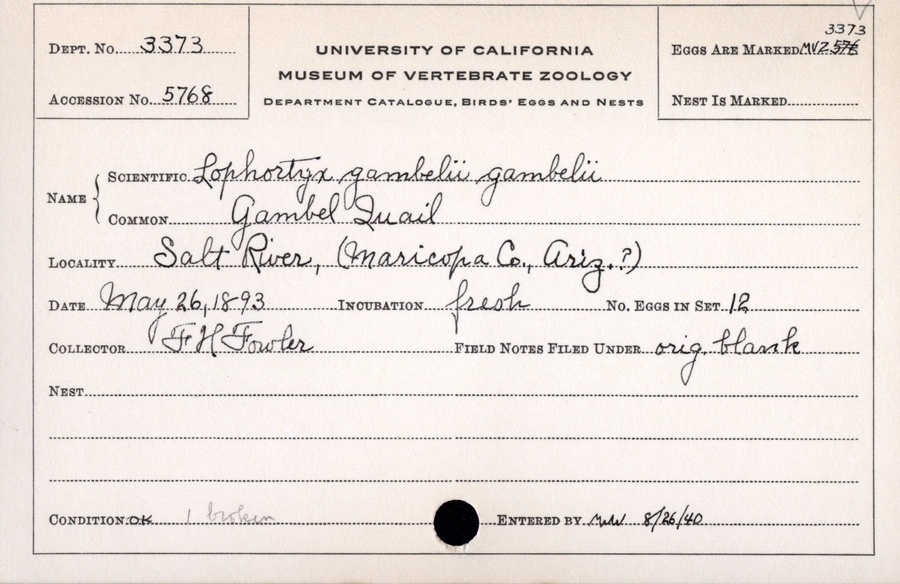 3373
Dept. No. 3373
UNIVERSITY OF CALIFORNIA
Eggs Are Marked MVZ 576
MUSEUM OF VERTEBRATE ZOOLOGY
Accession No. 5768
Department Catalogue, Birds' Eggs and Nests
Nest Is Marked
Name
Scientific Lophortyx gambelii gambelii
Common Gambel Quail
Locality Salt River, (Maricopa Co., Ariz.?)
Date May 26, 1893 Incubation fresh No. Eggs in Set 12
Collector F H Fowler Field Notes Filed Under orig. blank
Nest
Condition OK 1 broken Entered by 8/26/40